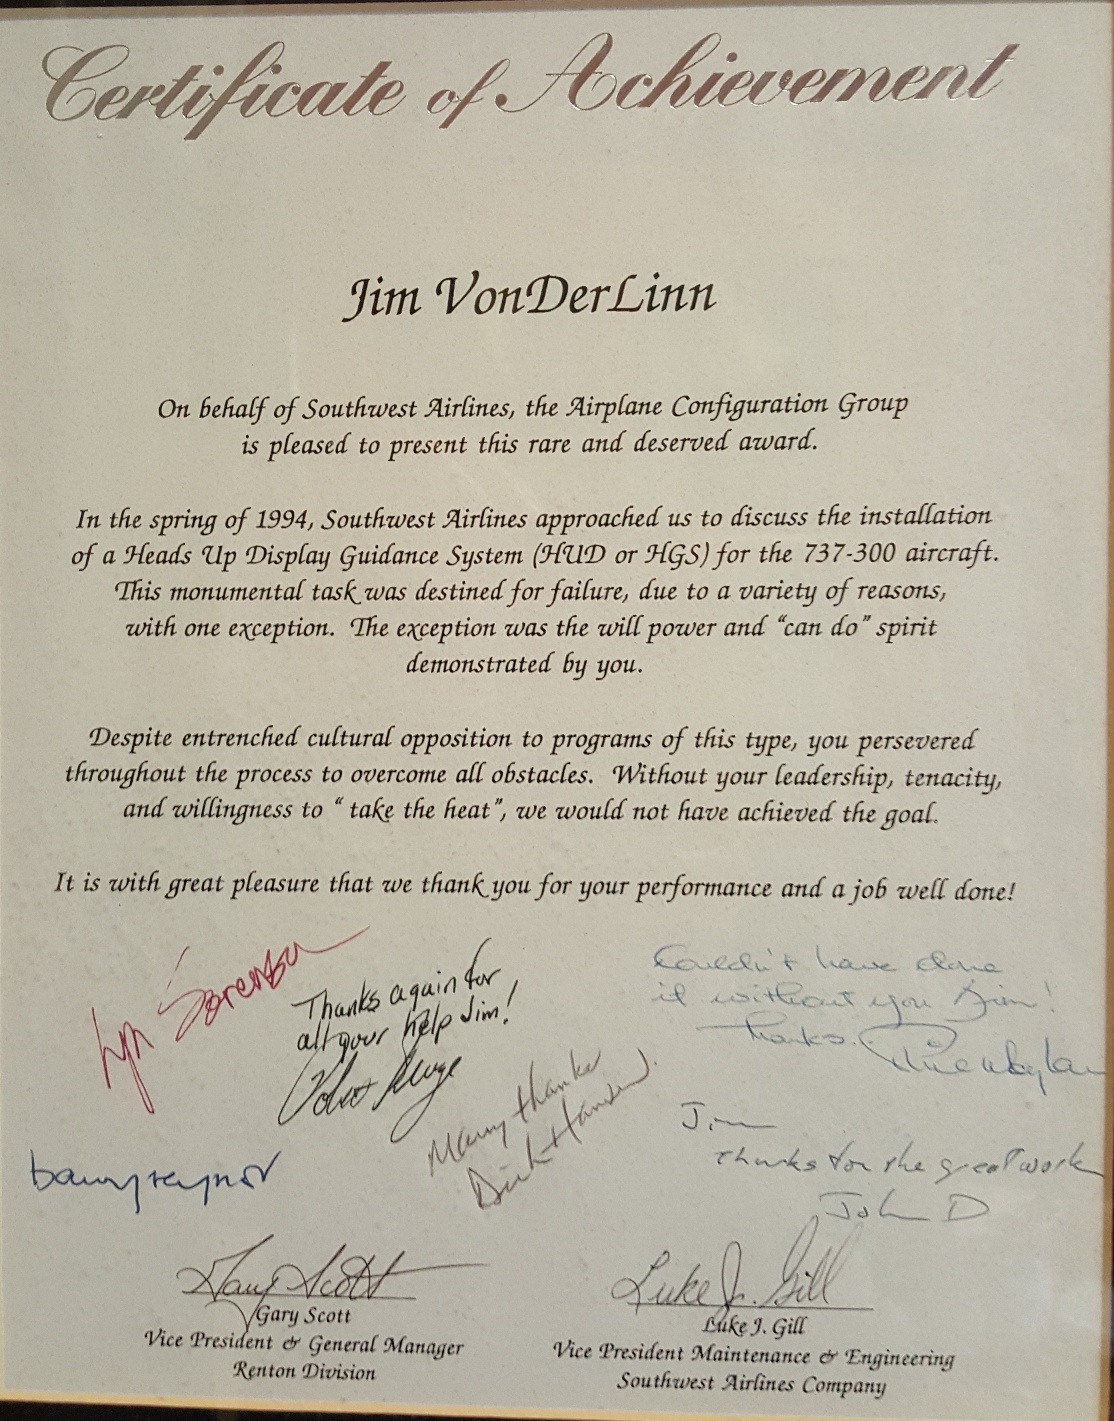 Certificate of Achievement
Jim VonDerLinn
On behalf of Southwest Airlines, the Airplane Configuration Group
is pleased to present this rare and deserved award.
In the spring of 1994, Southwest Airlines approached us to discuss the installation
of a Heads Up Display Guidance System (HUD or HGS) for the 737-300 aircraft.
This monumental task was destined for failure, due to a variety of reasons,
with one exception. The exception was the will power and "can do" spirit
demonstrated by you.
Despite entrenched cultural opposition to programs of this type, you persevered
throughout the process to overcome all obstacles. Without your leadership, tenacity,
and willingness to " take the heat", we would not have achieved the goal.
It is with great pleasure that we thank you for your performance and a job well done!
Lyn Sorensen
Thanks again for
all your help Jim!
Couldn't have done
it without you Jim!
Thanks.
Many thanks
Dick Hansen
Jim
Thanks for the great work
John D
Gary Scott
Luke J. Gill
Gary Scott
Vice President & General Manager
Renton Division
Luke J. Gill
Vice President Maintenance & Engineering
Southwest Airlines Company